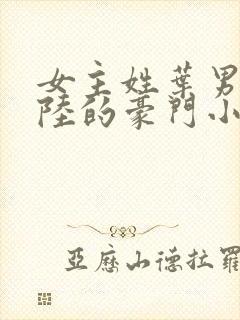 女主姓葉男
陸的豪門小
亞歷山德拉羅